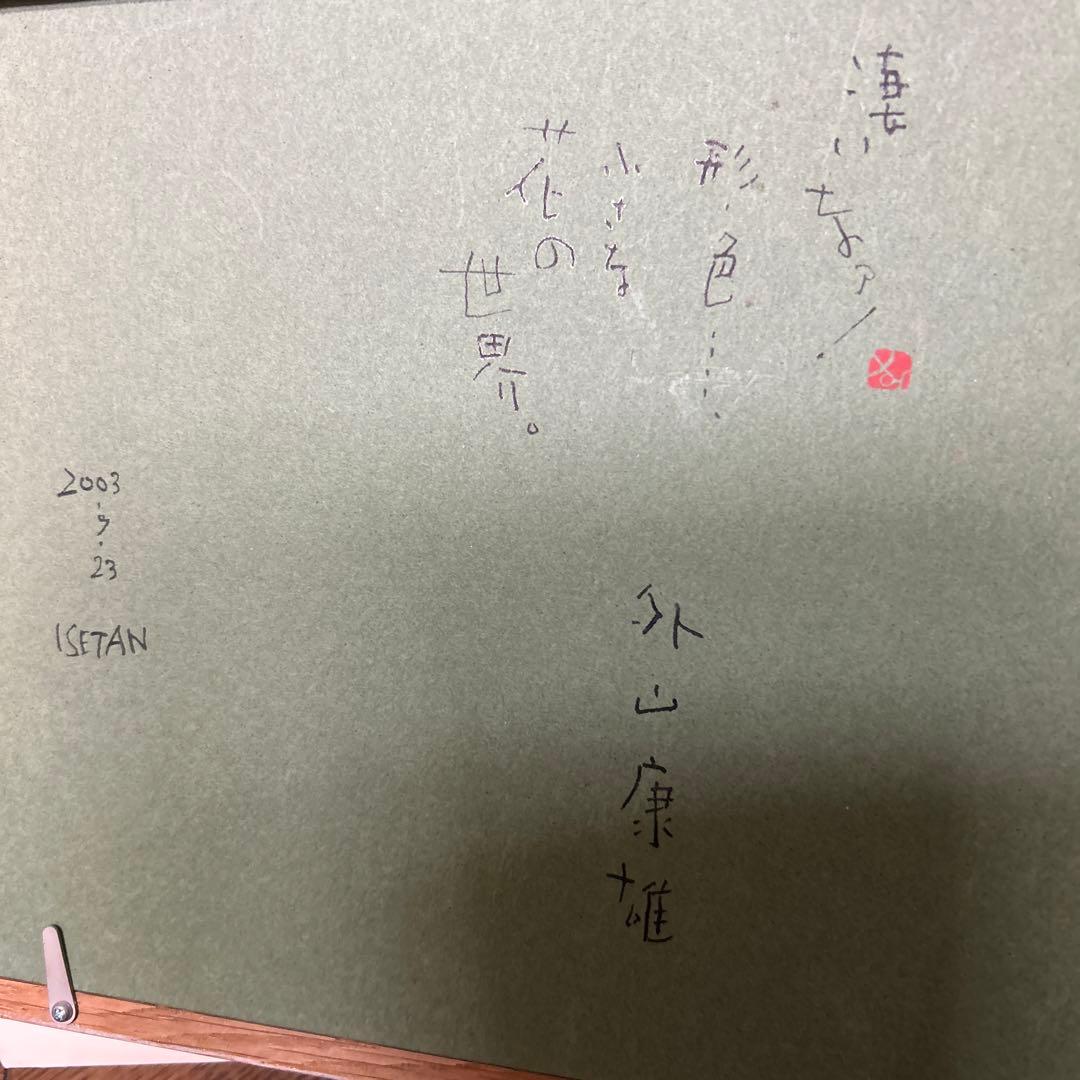 凄いなァ!
形・色……
小さな
花の
世界。
外山康雄
2003
・9・
23
ISETAN